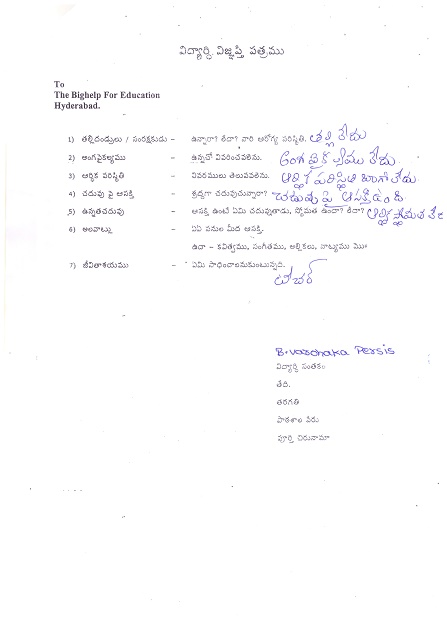 విద్యార్ధి విజ్ఞప్తి పత్రము
To
The Bighelp For Education
Hyderabad.
1) తల్లిదండ్రులు / సంరక్షకుడు – ఉన్నారా? లేదా? వారి ఆరోగ్య పరిస్థితి. తల్లి లేదు
2) అంగవైకల్యము – ఉన్నచో వివరించవలెను. అంగ వైకల్యము లేదు.
3) ఆర్థిక పరిస్థితి – వివరములు తెలుపవలెను. ఆర్థిక పరిస్థితి బాగా లేదు
4) చదువు పై ఆసక్తి – శ్రద్ధగా చదువుచున్నారా? చదువు పై ఆసక్తి ఉంది
5) ఉన్నతచదువు – ఆసక్తి ఉంటే ఏమి చదువుతాడు, స్తోమత ఉందా? లేదా? ఆర్థిక స్తోమత లేదు
6) అలవాట్లు – ఏఏ పనుల మీద ఆసక్తి.
ఉదా – కవిత్వము, సంగీతము, అల్లికలు, నాట్యము మొ॥
7) జీవితాశయము – ఏమి సాధించాలనుకుంటున్నది.
టీచర్
B. Varshaka Persis
విద్యార్ధి సంతకం
తేది.
తరగతి
పాఠశాల పేరు
పూర్తి చిరునామా